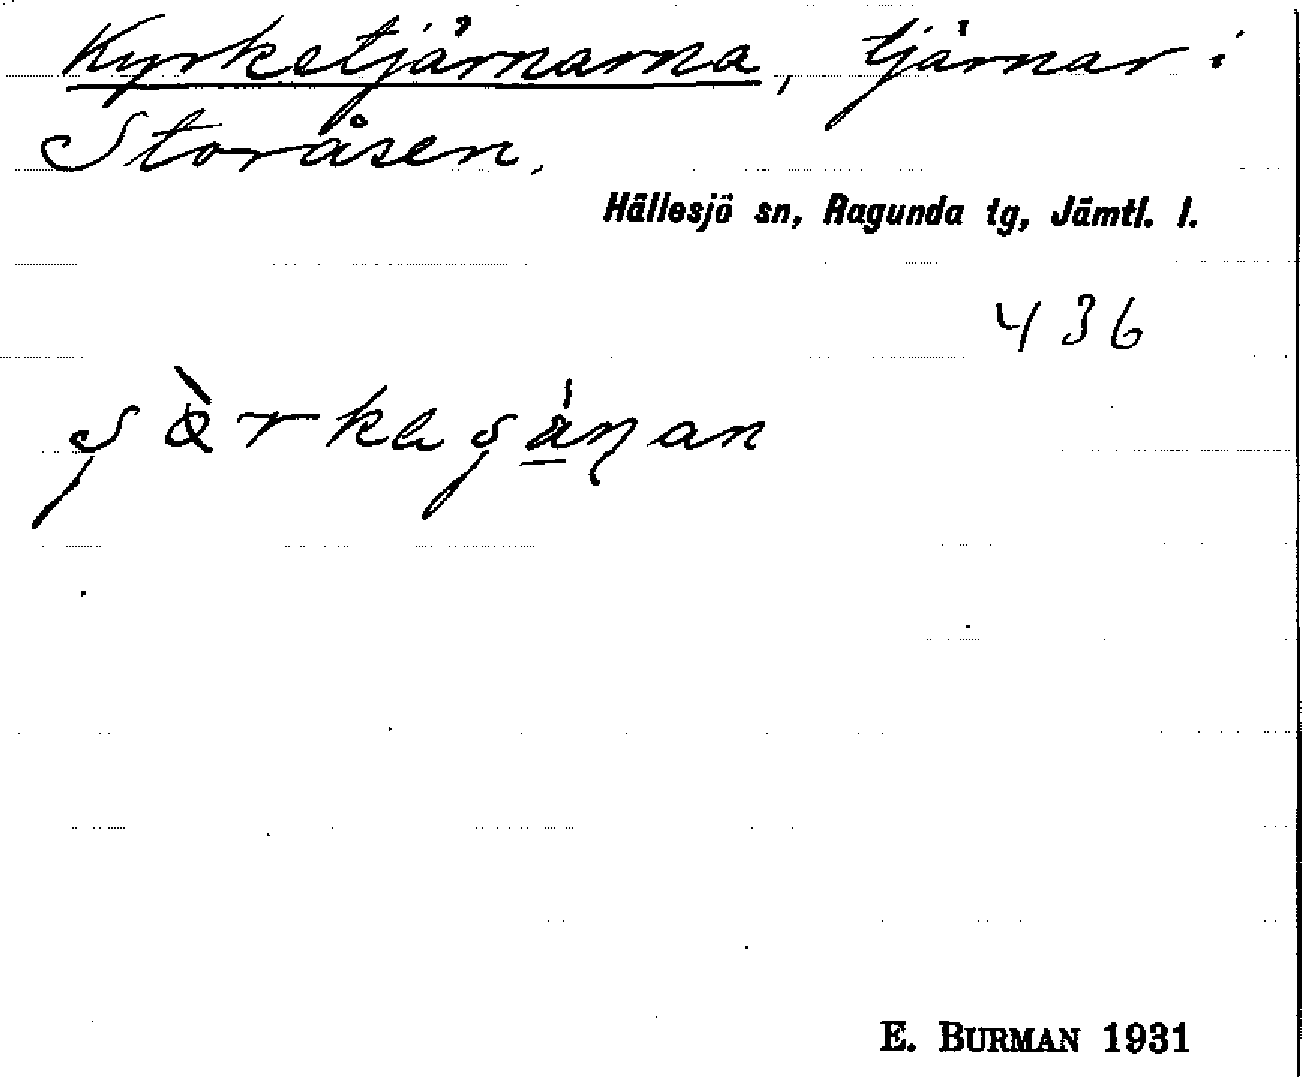 Kyrketjärnarna, tjärnar i
Storåsen.
Hällesjö sn, Ragunda tg, Jämtl. l.
436
E. BURMAN 1931